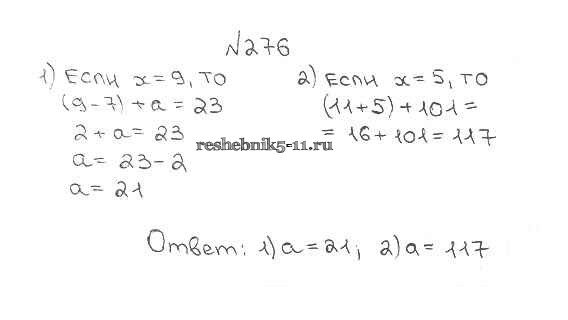 №276
1) Если x = 9, то
(9-7) + a = 23
2 + a = 23
a = 23-2
a = 21
2) Если x = 5, то
(11+5) + 101 =
= 16 + 101 = 117
reshebnik5-11.ru
Ответ: 1) a = 21; 2) a = 117